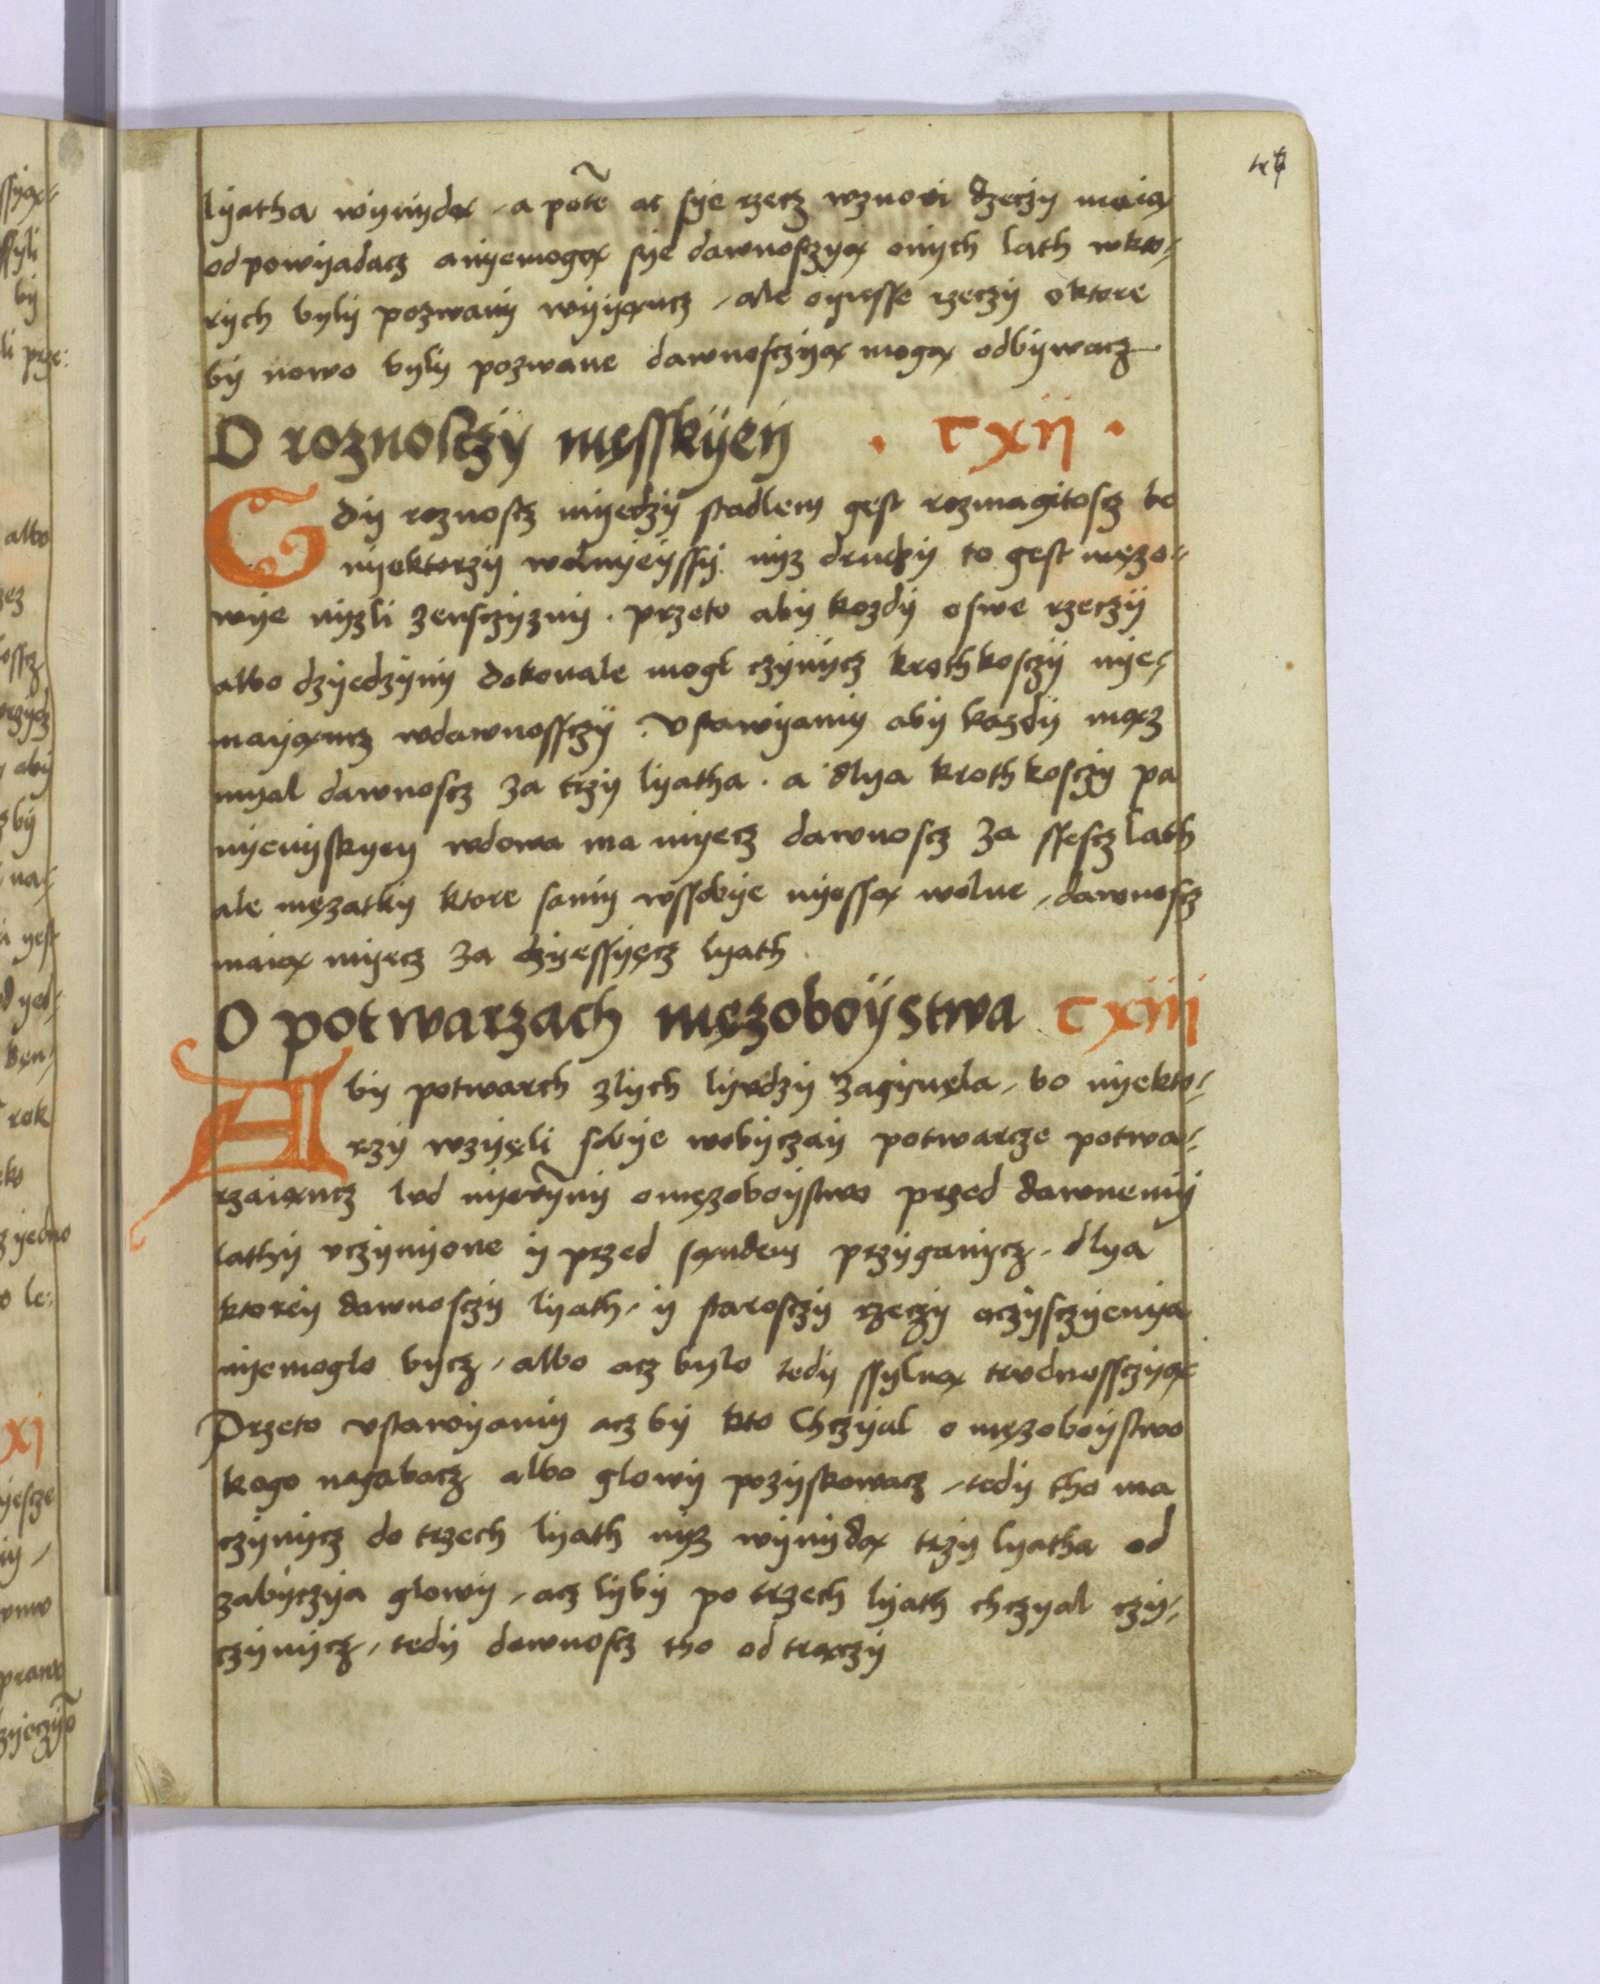 lyatha wynydą, a potẽ ac sye rzecz wznowi dzeczy maią
odpowyadacz anyemogą sye dawnosczyą onych lath wkto-
rych byly pozwany wyyąncz, ale oynsse rzeczy oktore
by nowo byly pozwane dawnosczyą mogą odbywacz
O roznosczy męsskyey . cxii .
Gdy roznoscz myedzy stadlem gest rozmagitoscz bo
nyektorzy wolnyeyssy nyz drudzy to gest męzo-
wye nyzli zensczyzny . przeto aby kozdy oswe rzeczy
albo dzyedzyny dokonale mogl czynycz krothkosczy nye-
mayąncz wdawnossczy . vstawyamy aby kazdy mąz
myal dawnoscz za trzy lyatha . a dlya krothkosczy pa
nyenyskyey wdowa ma myecz dawnoscz za ssescz lath
ale męzatky ktore samy wssobye nyessą wolne, dawnoscz
maią myecz za dzyessyęcz lyath
O potwarzach męzoboystwa cxiii
Aby potwarch zlych lyvdzy zagynęla, bo nyekto-
rzy wzyęli sobye wobyczay potwarcze potwa-
rzaiąncz lvd nyevỹny omęzoboystwo przed dawnemy
lathy vczynyone y przed sąndem przyganycz, dlya
ktorey dawnosczy lyath, y starosczy rzeczy oczysczyenya
nyemoglo bycz, albo acz bylo tedy ssylną trvdnossczyą
Przeto vstawyamy acz by kto Chczyal o męzoboystwo
kogo nagabacz albo glowy pozyskowacz, tedy tho ma
czynycz do trzech lyath nyz wynydą trzy lyatha od
zabyczya glowy, acz lyby po trzech lyath chczyal czy-
czynycz, tedy dawnoscz tho od trączy